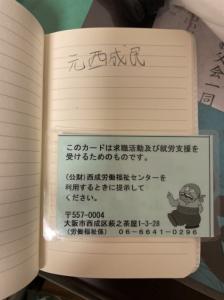 元西成民
文会一同
このカードは求職活動及び就労支援を
受けるためのものです。
(公財)西成労働福祉センターを
利用するときに提示して
ください。
〒557-0004
大阪市西成区萩之茶屋1-3-28
(労働福祉係) 06-6641-0296